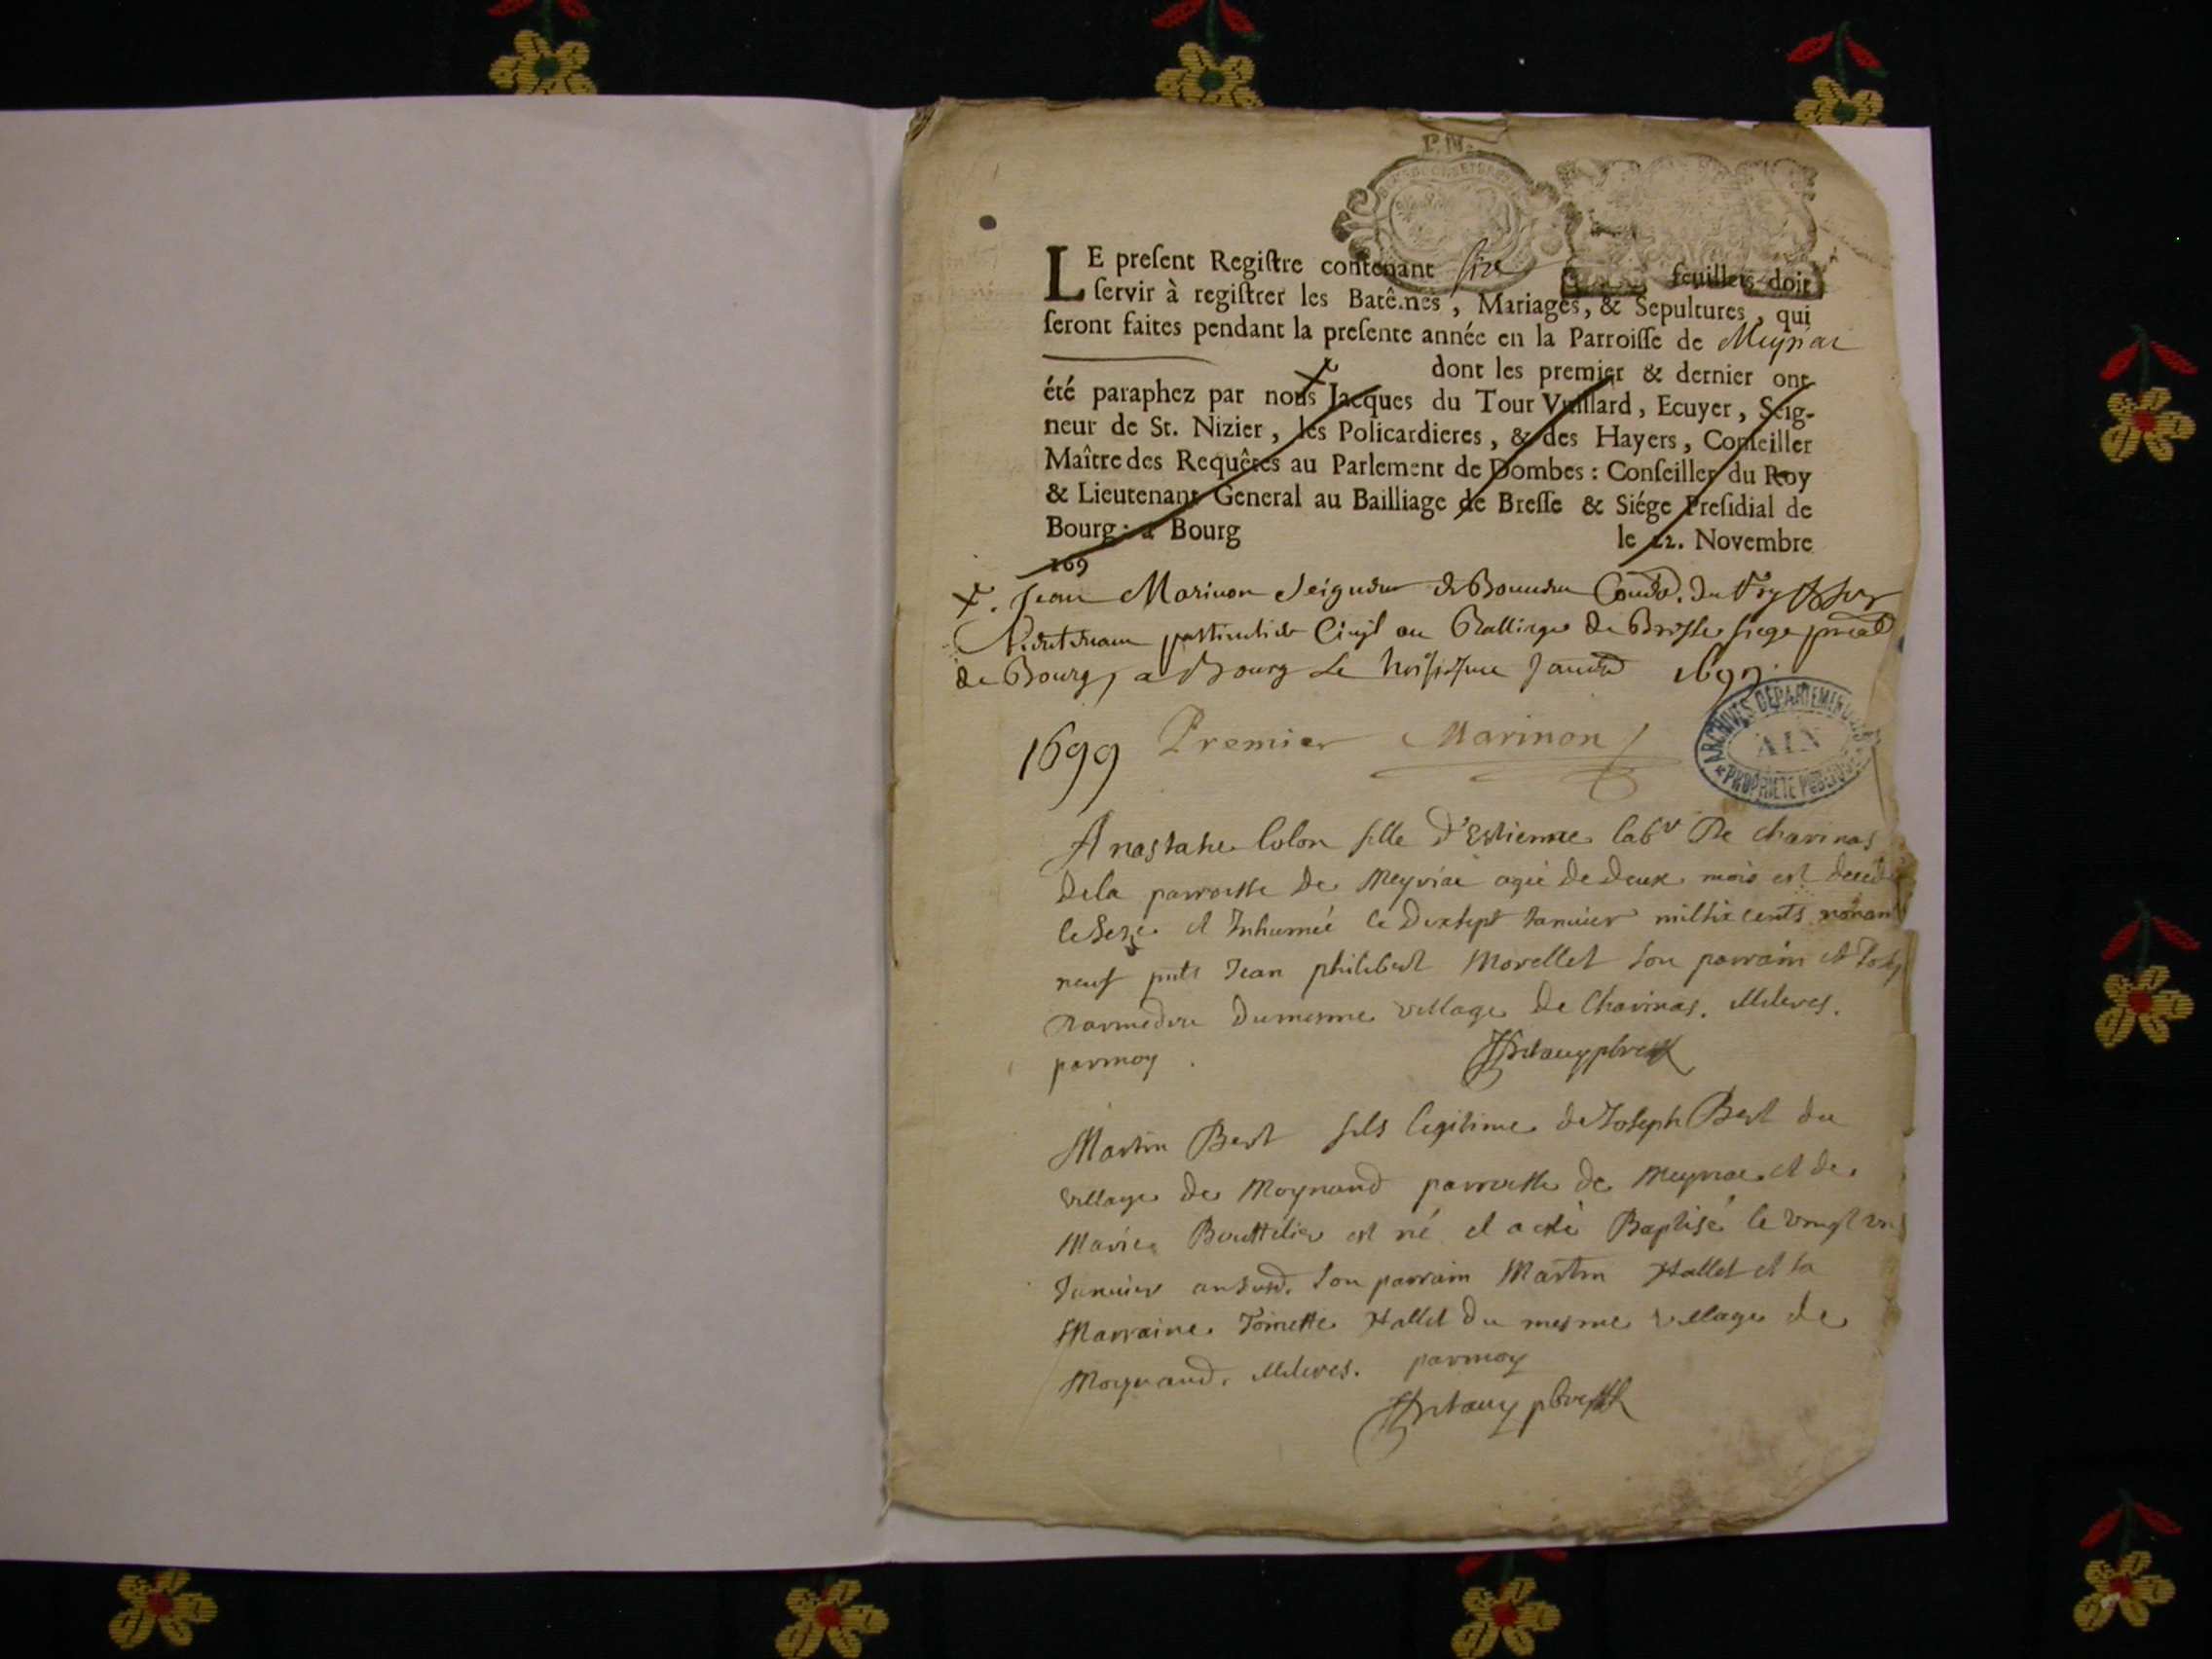 P. N.
LE preſent Regiſtre contenant six feuillets doit
ſervir à regiſtrer les Batê.nes, Mariages, & Sepultures, qui
ſeront faites pendant la preſente année en la Parroiſſe de Meyriat
dont les premier & dernier ont
été paraphez par nous Jacques du Tour Vuillard, Ecuyer, Seig-
neur de St. Nizier, les Policardieres, & des Hayers, Conſeiller
Maître des Requêtes au Parlement de Dombes: Conſeiller du Roy
& Lieutenant General au Bailliage de Breſſe & Siége Preſidial de
Bourg: à Bourg le 22. Novembre
169
Jean Marinon Seigneur de du Roy
Lieutenant particulier Civil au Balliage de Bresse siege
de Bourg, a Bourg Le Janvier 1699
1699 Premier Marinon
ARCHIVES DEPARTEMENTALES
AIN
PROPRIETE PUBLIQUE
Colon fille d'Estienne labr De Chavinas
de la parroisse de Meyriai agée de deux mois est decedée
le seze et Inhumée le dixsept Janvier mil six cents nonan
neuf pnts Jean philibert Morellet son parrain et
du mesme village de Chavinas. Illiteres.
par moy
Martin Bert fils legitime de Joseph Bert du
village de Moynand parroisse de Meyriae et de
Marie est né et a esté Baptisé le vingt
Janvier an susd. son parrain Martin Hallet et sa
Marraine Toinette Hallet du mesme village de
Moynand. Illiteres. par moy